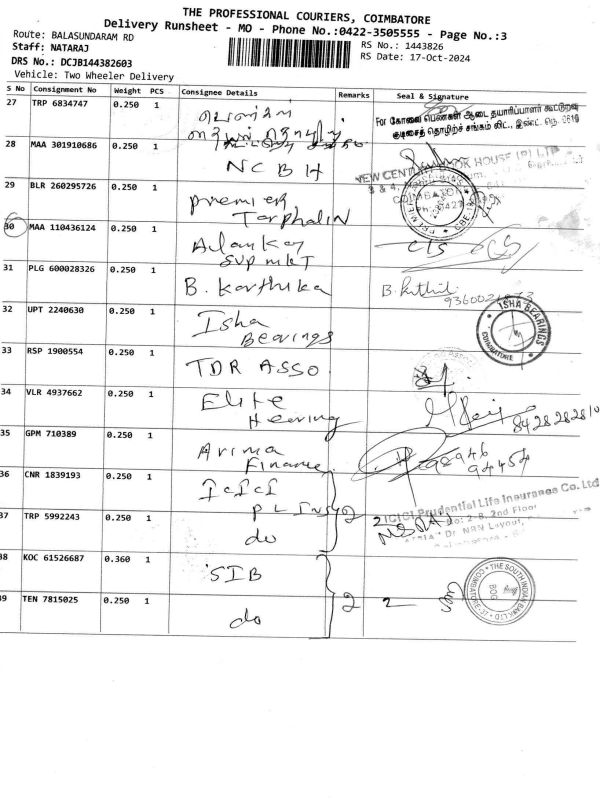 THE PROFESSIONAL COURIERS, COIMBATORE
Delivery Runsheet - MO - Phone No.:0422-3505555 - Page No.:3
Route: BALASUNDARAM RD
RS No.: 1443826
Staff: NATARAJ
RS Date: 17-Oct-2024
DRS No.: DCJB144382603
Vehicle: Two Wheeler Delivery
S No Consignment No Weight PCS Consignee Details Remarks Seal & Signature
27 TRP 6834747 0.250 1
For கோவை பெண்கள் ஆடை தயாரிப்பாளர் கூட்டுறவு
குடிசைத் தொழிற் சங்கம் லிட்.,
28 MAA 301910686 0.250 1 NCBH
NEW CENTURY BOOK HOUSE (P) LTD
29 BLR 260295726 0.250 1 Premier
Tarphalin
30 MAA 110436124 0.250 1 Alankar
Sup mkt
31 PLG 600028326 0.250 1 B. Karthika
32 UPT 2240630 0.250 1 Isha
Bearings
ISHA BEARINGS
COIMBATORE
33 RSP 1900554 0.250 1 TDR ASSO
34 VLR 4937662 0.250 1 Elite
Hearing
8428282810
35 GPM 710389 0.250 1 Arima
Finance
98946
94454
36 CNR 1839193 0.250 1 ICICI
PL INS 2
2
ICICI Prudential Life Insurance Co. Ltd
No: 2-B, 2nd Floor
Dr NRN Layout,
37 TRP 5992243 0.250 1 do
38 KOC 61526687 0.360 1 SIB
THE SOUTH INDIAN BANK LTD
39 TEN 7815025 0.250 1 do 2 2